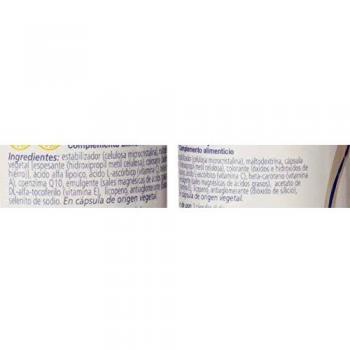 Complemento alime
Ingredientes: estabilizador (celulosa microcristalina),
vegetal [espesante (hidroxipropil metil celulosa), colorante
hierro)], ácido alfa lipoico, ácido L-ascórbico (vitamina
A), coenzima Q10, emulgente (sales magnésicas de ácidos
DL-alfa-tocoferilo (vitamina E), licopeno, antiaglomerante
selenito de sodio. En cápsula de origen vegetal.
Complemento alimenticio
(celulosa microcristalina), maltodextrina, cápsula
hidroxipropil metil celulosa), colorante (óxidos e hidróxidos de
ácido L-ascórbico (vitamina C), beta-caroteno (vitamina
(sales magnésicas de ácidos grasos), acetato de
E), licopeno, antiaglomerante (dióxido de silicio),
En cápsula de origen vegetal.